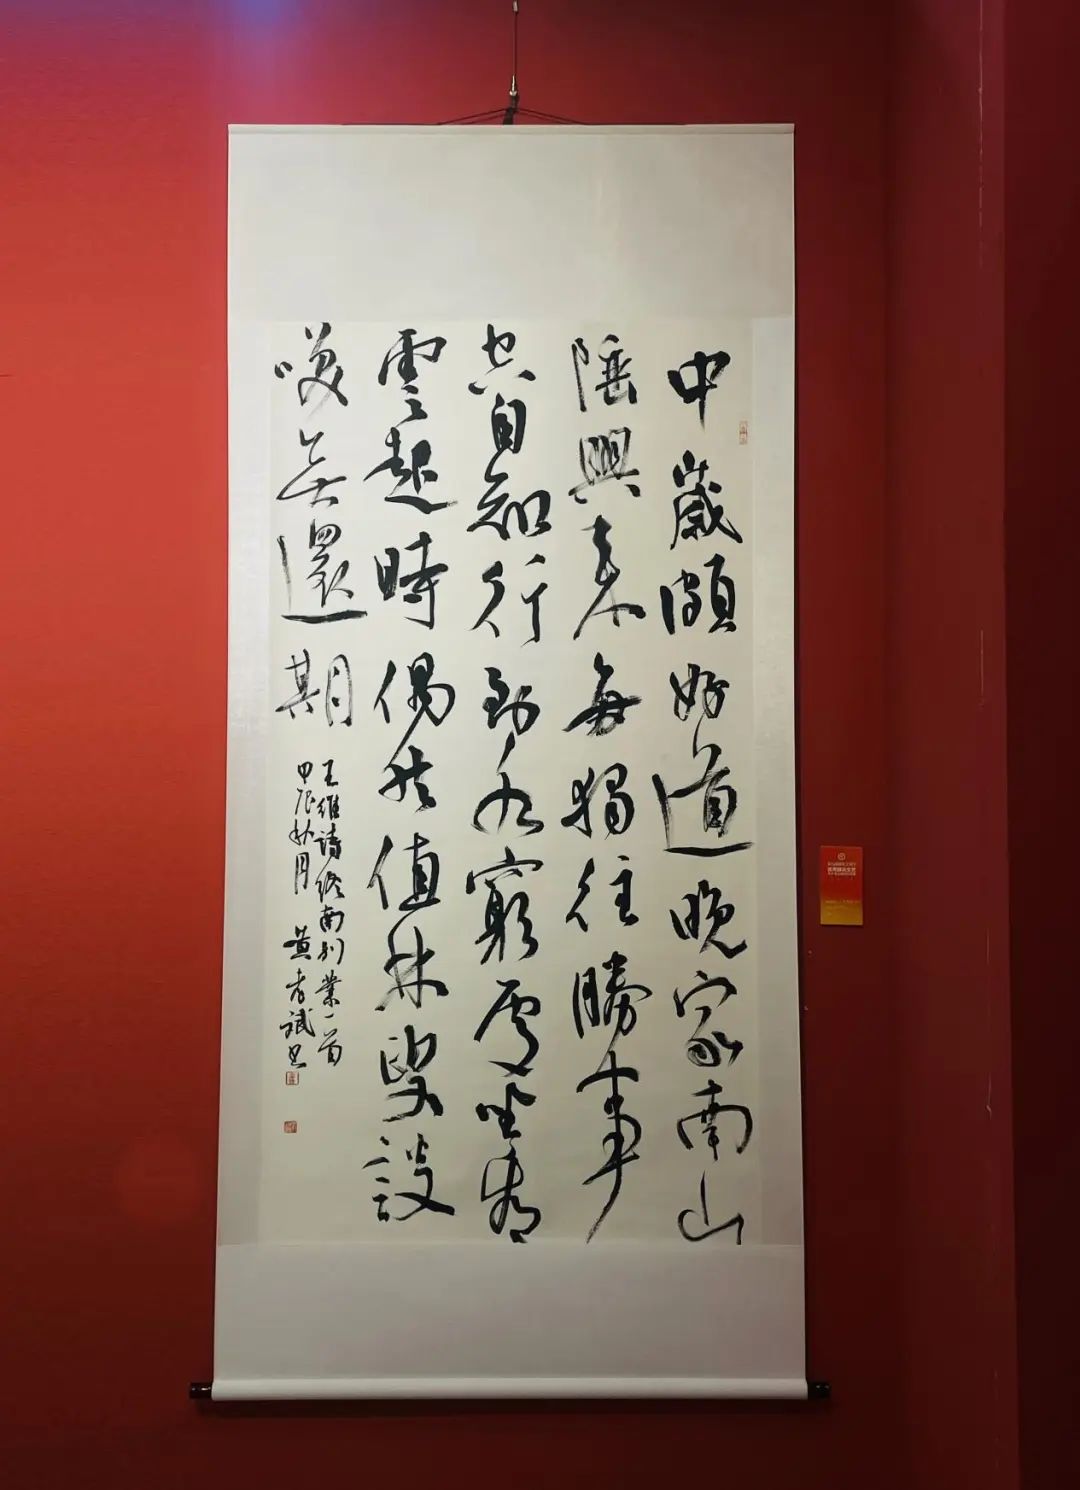 中歲頗好道晚家南山
陲興來每獨往勝事
空自知行到水窮處坐看
雲起時偶然值林叟談
笑無還期
王維詩終南別業一首
甲辰秋月 黃孝斌書